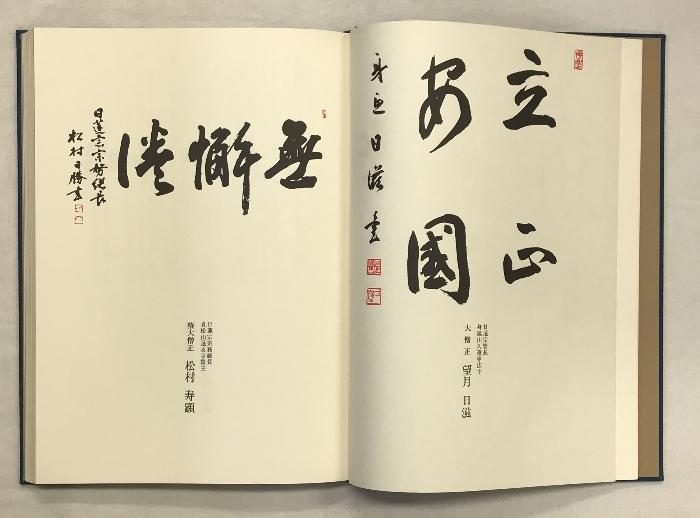 立正
安國
身延日滋書
日蓮宗管長
身延山久遠寺法主
大僧正 望月 日滋
無懈倦
日蓮宗宗務総長
松村日勝書
日蓮宗宗務総長
貞松山蓮永寺貫主
権大僧正 松村 寿顕